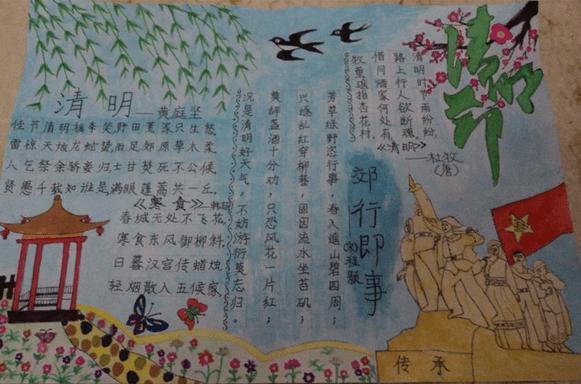 清明——黄庭坚
佳节清明桃李笑野田荒冢只生愁
雷惊天地龙蛇蛰雨足郊原草木柔
人乞祭余骄妾妇士甘焚死不公候
贤愚千载知谁是满眼蓬蒿共一丘，
《寒食》
春城无处不飞花，
寒食东风御柳斜，
日暮汉宫传蜡烛，
轻烟散入五候家，
郊行即事
(宋)程颢
芳草绿野恣行事，春入遥山碧四周；
兴逐乱红穿柳巷，困因流水坐苔矶；
莫辞盏酒十分劝，只恐风花一片红；
况是清明好天气，不妨游衍莫忘归。
清明节
清明时节雨纷纷，
路上行人欲断魂，
借问酒家何处有，
牧童遥指杏花村，
《清明》
—杜牧
(唐)
传承